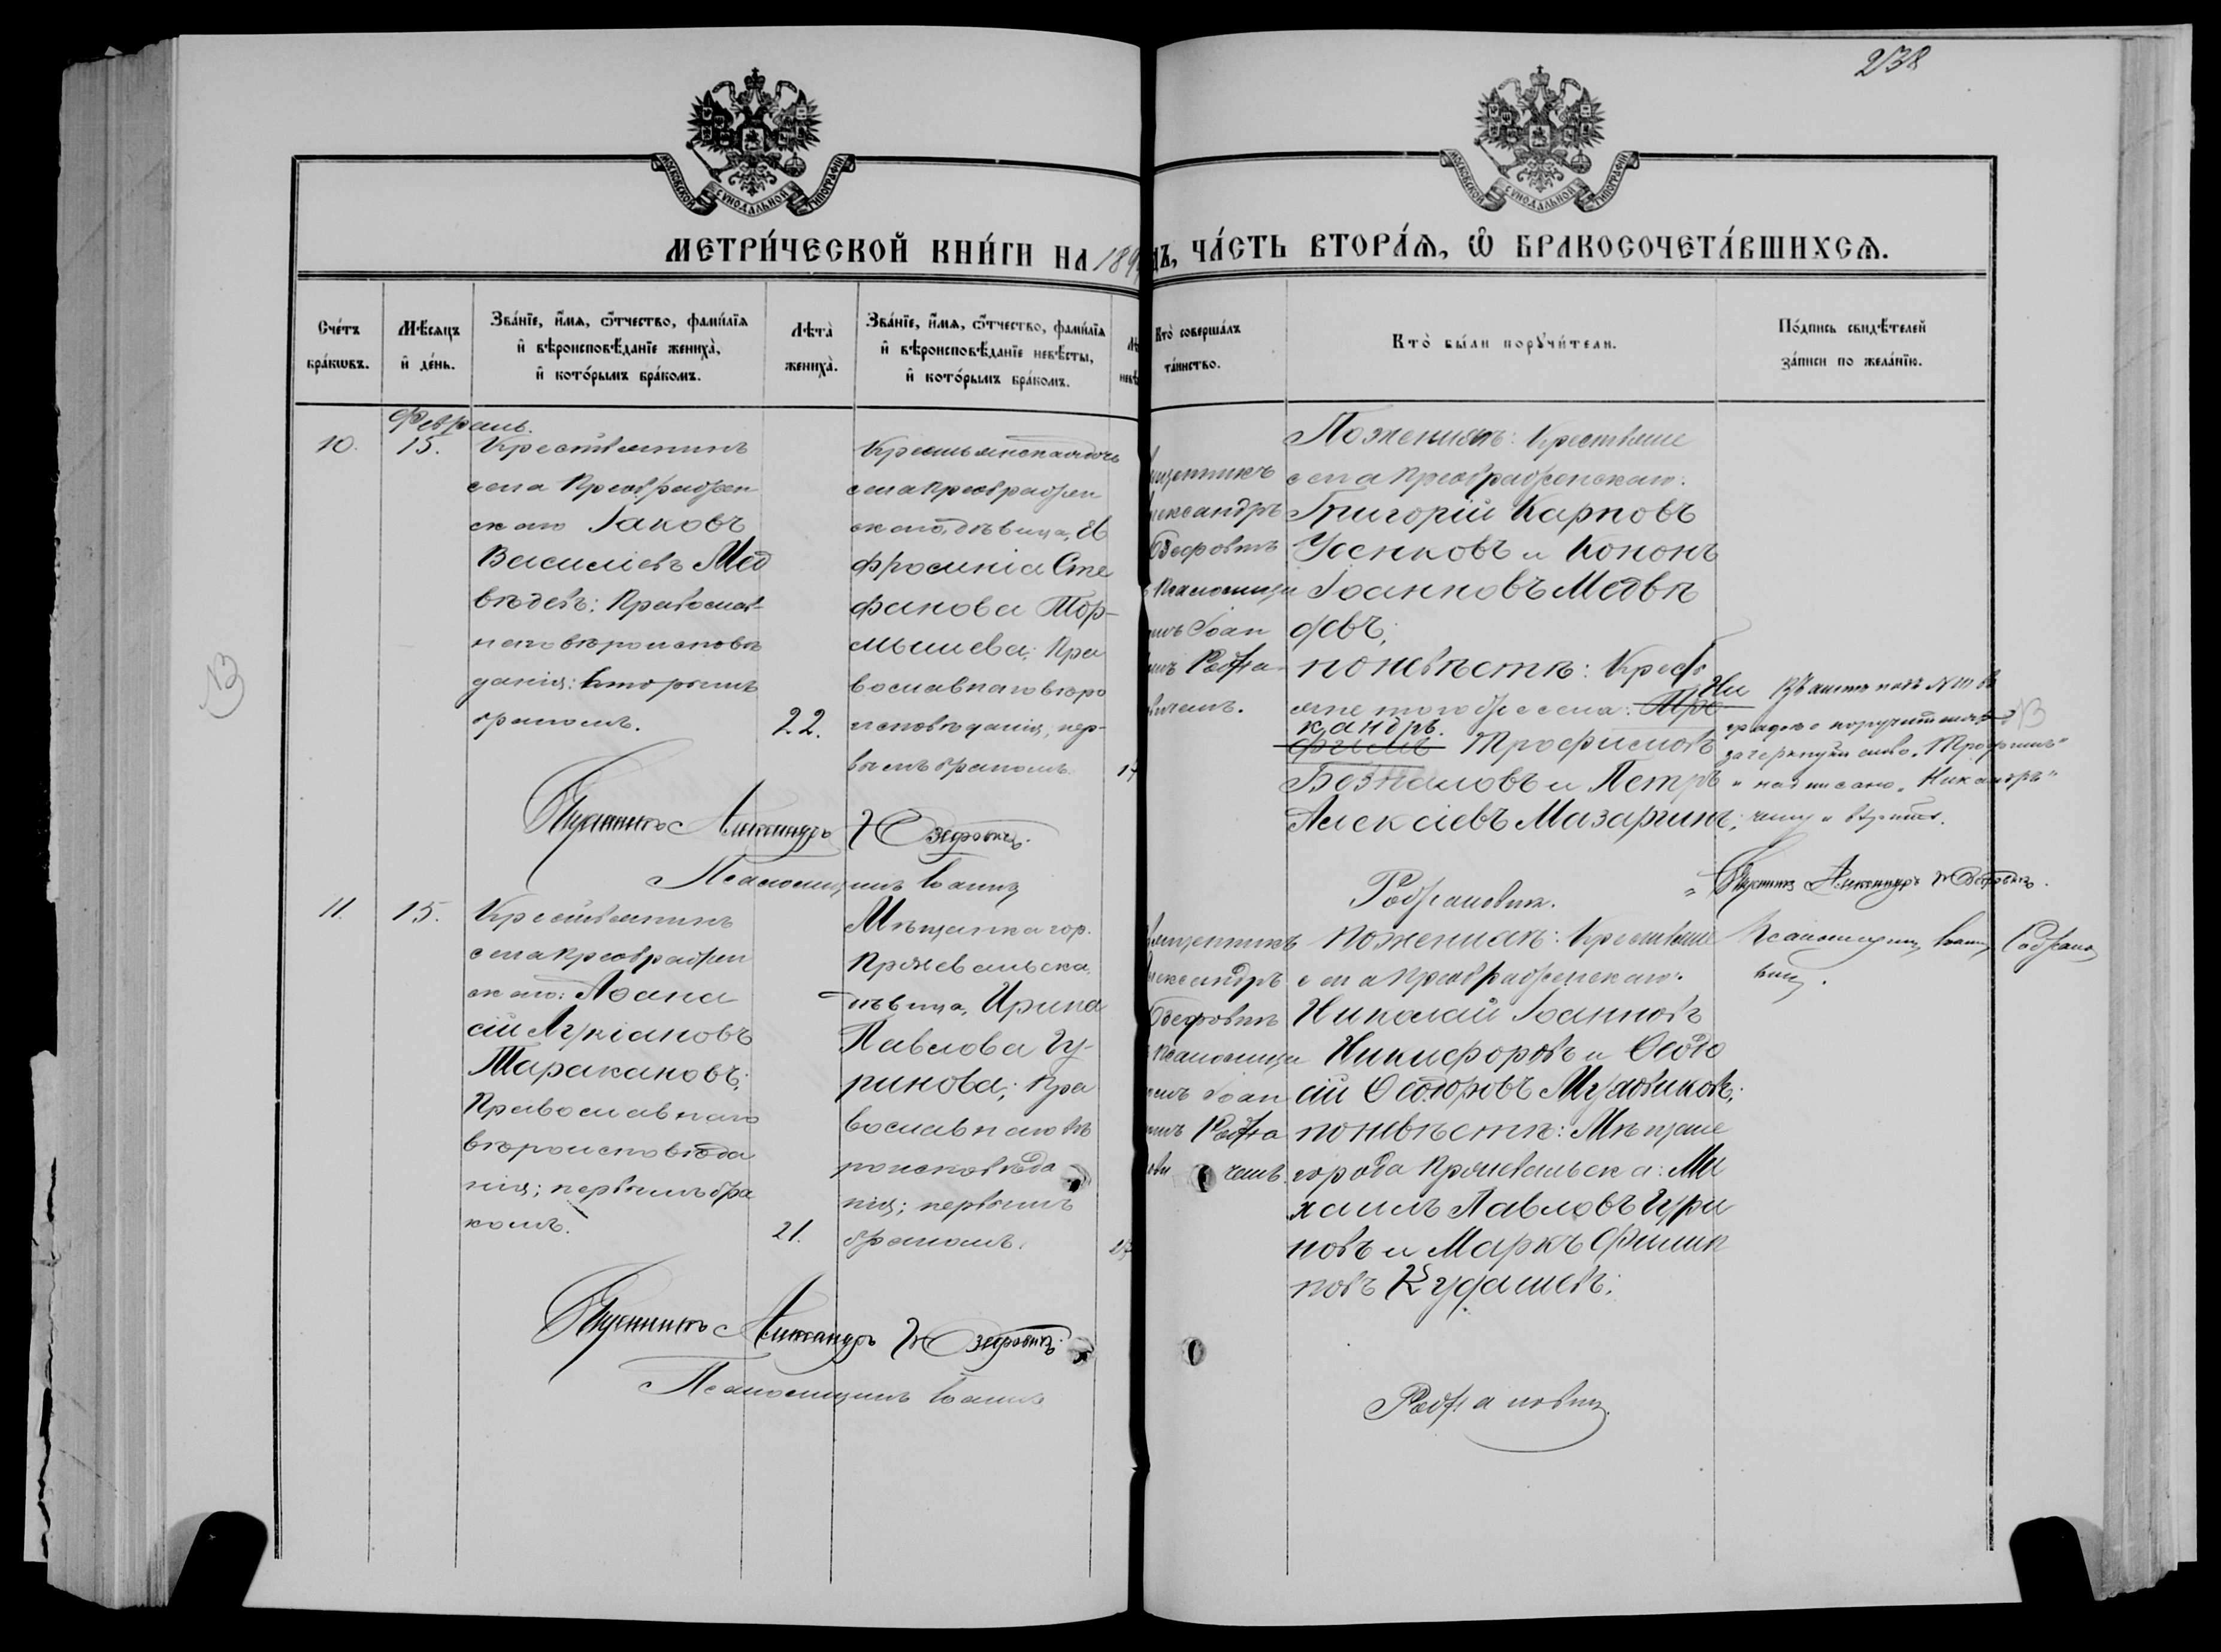 238
МОСКОВСКОЙ СУНОДАЛЬНОЙ ТИПОГРАФІИ
МОСКОВСКОЙ СУНОДАЛЬНОЙ ТИПОГРАФІИ
МЕТРИ́ЧЕСКОЙ КНИ́ГИ НА 189
ДЪ, ЧА́СТЬ ВТОРА́Я, Ѡ҆ БРАКОСОЧЕТА́ВШИХСЯ.
Сче́тъ бра́кѡвъ.
Мѣ́сяцъ и҆ де́нь.
Зва́нїе, и҆́мя, ѻ҆́тчество, фами́лїя
и҆ вѣроисповѣ́данїе жениха̀,
и҆ кото́рымъ бра́комъ.
Лѣта̀ жениха̀.
Зва́нїе, и҆́мя, ѻ҆́тчество, фами́лїя
и҆ вѣроисповѣ́данїе невѣ́сты,
и҆ кото́рымъ бра́комъ.
Кто̀ соверша́лъ
та́инство.
Кто̀ бы́ли порꙋчи́тели.
По́дпись свидѣ́телей
за́писи по жела́нїю.
Февраль.
10.
15.
Крестьянинъ
села Преображен
скаго Іаковъ
Василіевъ Мед
вѣдевъ; Православ
наго вѣроисповѣ
данія; вторымъ
бракомъ.
22.
Крестьянская дочь
села Преображен
скаго, дѣвица, Ев
фросинія Сте
фанова Тор-
мышева; Пра
вославнаго вѣро
исповѣданія, пер-
вымъ бракомъ.
17
ященникъ
лександръ
Юзефовичъ
Псаломщи
омъ Іоан
омъ Родза
вичемъ.
По женихѣ: Крестьяне
села Преображенскаго:
Григорій Карповъ
Усенковъ и Кононъ
Іоанновъ Медвѣ
девъ;
по невѣстѣ: Кресть
яне того же села: Тро
Ни
кандръ.
фимъ Трофимовъ
Безпаловъ и Петръ
Алексіевъ Мазаринъ;
Въ актѣ подъ № 10 въ
графѣ о поручителяхъ
зачеркнуто слово „Трофимъ"
и написано „Никандръ"
чему и вѣрить.
Священникъ Александръ Юзефовичъ.
Псаломщикъ Іоаннъ Родзано
вичъ.
Священникъ Александръ Юзефовичъ.
Псаломщикъ Іоаннъ
Родзановичъ.
11.
15.
Крестьянинъ
села Преображен
скаго: Аѳана
сій Лукіановъ
Таракановъ;
Православнаго
вѣроисповѣда
нія; первымъ бра
комъ.
21.
Мѣщанка гор.
Пржевальска,
дѣвица, Ирина
Павлова Гу-
ринова; Пра
вославнаго вѣ
роисповѣда
нія; первымъ
бракомъ.
ященникъ
лександръ
Юзефовичъ
Псаломщи
омъ Іоан
омъ Родза
нови чемъ.
По женихѣ: Крестьяне
села Преображенскаго:
Николай Іоанновъ
Никифоровъ и Ѳеодо
сій Ѳеодоровъ Мужовиковъ;
по невѣстѣ: Мѣщане
города Пржевальска: Ми
хаилъ Павловъ Гури
новъ и Маркъ Филип
повъ Кудашевъ;
Священникъ Александръ Юзефовичъ.
Псаломщикъ Іоаннъ
Родзановичъ.